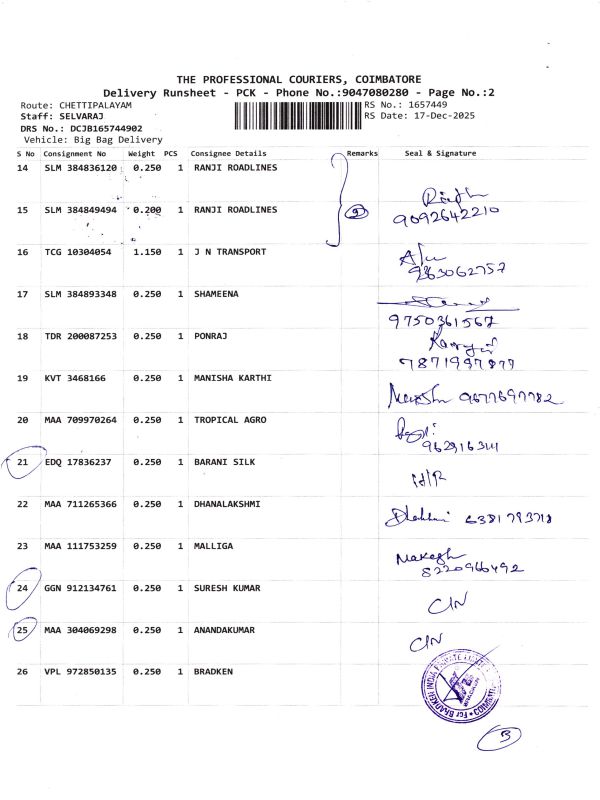 THE PROFESSIONAL COURIERS, COIMBATORE
Delivery Runsheet - PCK - Phone No.:9047080280 - Page No.:2
Route: CHETTIPALAYAM RS No.: 1657449
Staff: SELVARAJ RS Date: 17-Dec-2025
DRS No.: DCJB165744902
Vehicle: Big Bag Delivery
S No Consignment No Weight PCS Consignee Details Remarks Seal & Signature
14 SLM 384836120 0.250 1 RANJI ROADLINES
15 SLM 384849494 0.200 1 RANJI ROADLINES 2
9092642210
16 TCG 10304054 1.150 1 J N TRANSPORT
9363062757
17 SLM 384893348 0.250 1 SHAMEENA
9750361567
18 TDR 200087253 0.250 1 PONRAJ
19 KVT 3468166 0.250 1 MANISHA KARTHI
9677697782
20 MAA 709970264 0.250 1 TROPICAL AGRO
21 EDQ 17836237 0.250 1 BARANI SILK
22 MAA 711265366 0.250 1 DHANALAKSHMI
6381793718
23 MAA 111753259 0.250 1 MALLIGA
Makesh
8220966492
24 GGN 912134761 0.250 1 SURESH KUMAR
C/N
25 MAA 304069298 0.250 1 ANANDAKUMAR
C/N
26 VPL 972850135 0.250 1 BRADKEN
For BRADKEN INDIA PRIVATE LIMITED
3